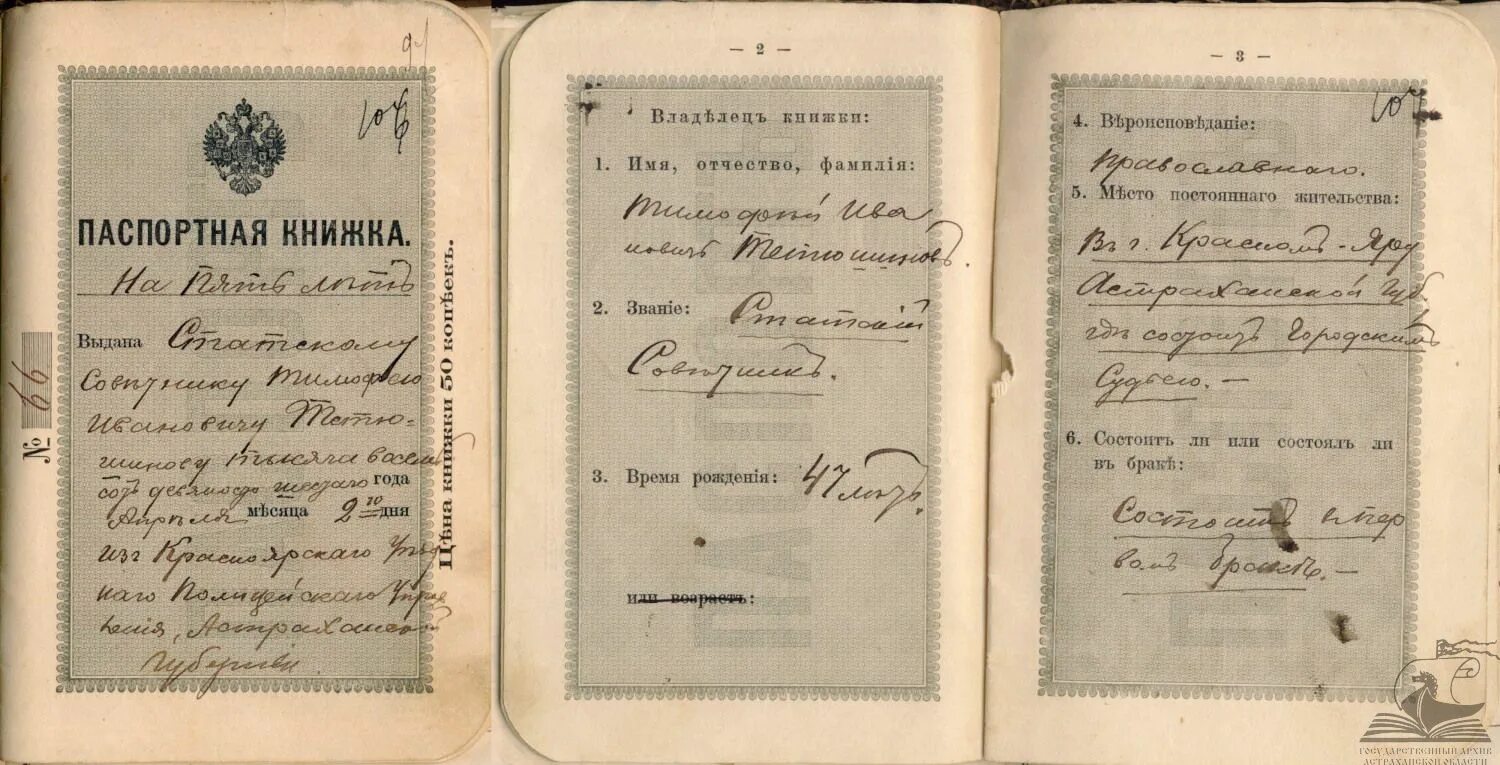 107
ПАСПОРТНАЯ КНИЖКА.
На Пять лѣтъ
Выдана Статскому
Совѣтнику Тимофею
Ивановичу Тетю-
шинову тысяча восемь
сотъ девяносто шестаго года
Апрѣля мѣсяца 2го дня
изъ Красноярскаго Уѣзд
наго Полицейскаго Управ
ленія, Астраханской
Губерніи
№ 66
Цѣна книжки 50 копѣекъ.
— 2 —
Владѣлецъ книжки:
1. Имя, отчество, фамилія:
Тимофѣй Ива
новичъ Тетюшиновъ.
2. Званіе: Статскій
Совѣтникъ.
3. Время рожденія: 47 лѣтъ.
или возрастъ:
— 3 —
107
4. Вѣроисповѣданіе:
Православнаго.
5. Мѣсто постояннаго жительства:
Въ г. Красномъ-Яру
Астраханской Губ.
гдѣ состоитъ Городскимъ
Судьею. —
6. Состоитъ ли или состоялъ ли
въ бракѣ:
Состоитъ въ пер
вомъ бракѣ. —
ГОСУДАРСТВЕННЫЙ АРХИВ
АСТРАХАНСКОЙ ОБЛАСТИ